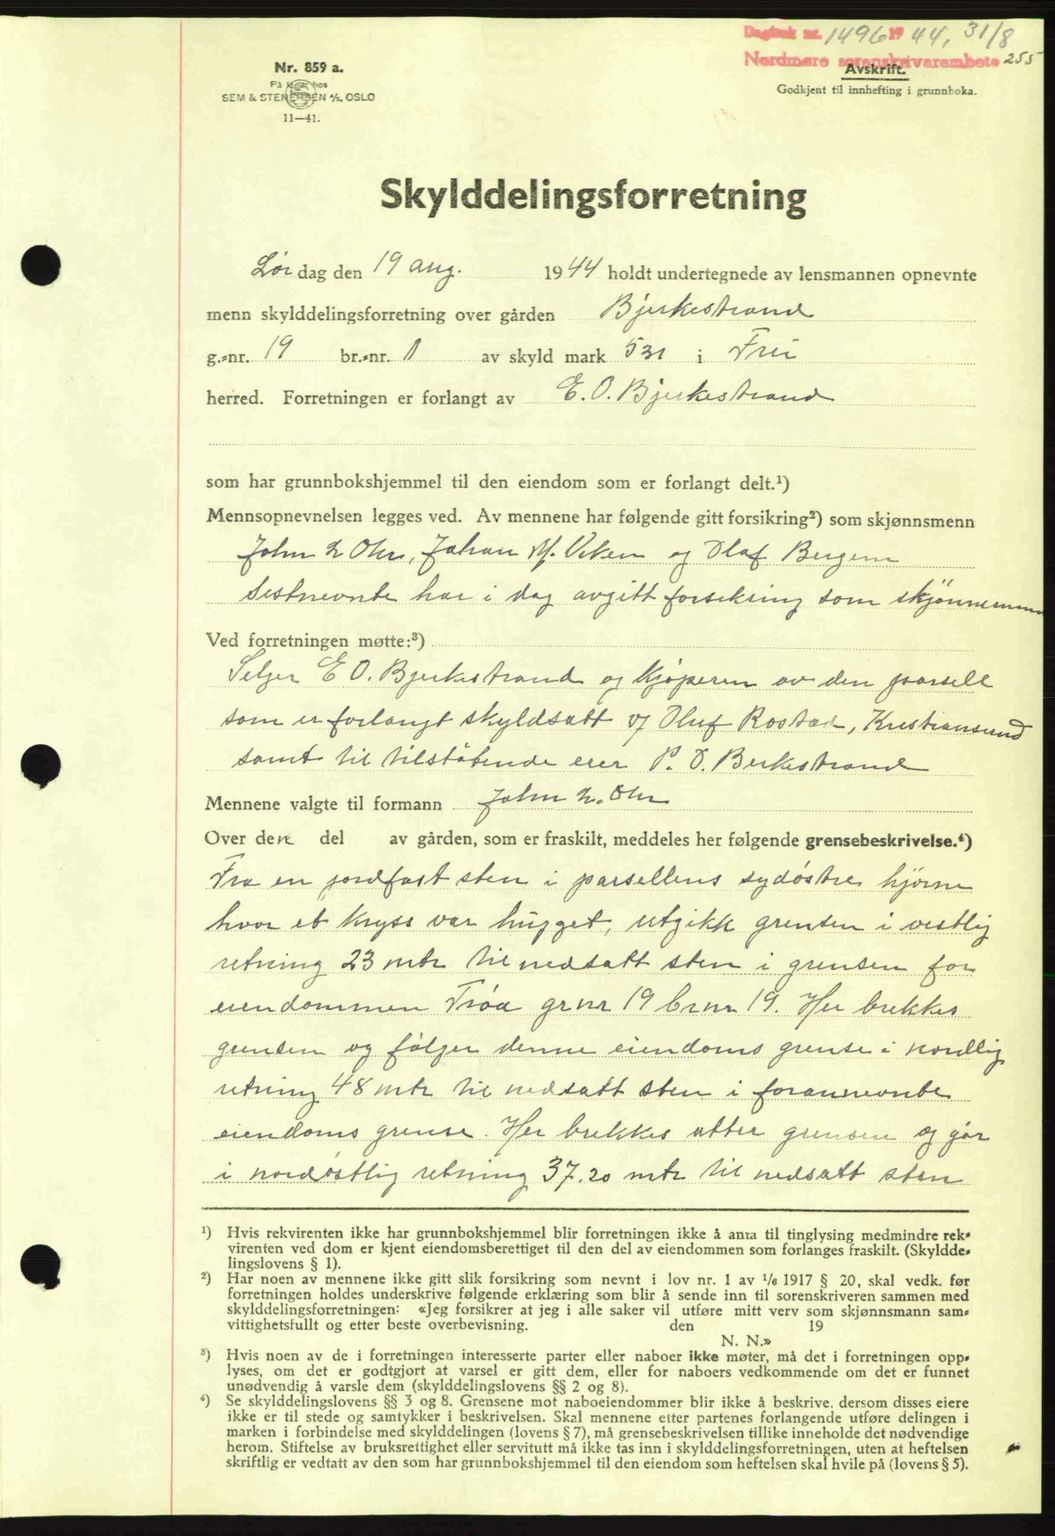 Dagbok nr. 1496 1944, 31/8
Nordmøre sorenskriverembete 255
Nr. 859 a.
På lager hos
SEM & STENERSEN A/S, OSLO
11—41.
Avskrift.
Godkjent til innhefting i grunnboka.
Skylddelingsforretning
Lør dag den 19 aug. 1944 holdt undertegnede av lensmannen opnevnte
menn skylddelingsforretning over gården Bjerkestrand
g.-nr. 19 br.-nr. 1 av skyld mark 531 i Frei
herred. Forretningen er forlangt av E. O. Bjerkestrand
som har grunnbokshjemmel til den eiendom som er forlangt delt.¹)
Mennsopnevnelsen legges ved. Av mennene har følgende gitt forsikring²) som skjønnsmenn
John L. Ohr, Johan M. Viken og Olaf Bergem
Sistnevnte har i dag avgitt forsikring som skjønnsmenn
Ved forretningen møtte:³)
Selger E O. Bjerkestrand og kjøperen av den parsell
som er forlangt skyldsatt og Oluf Rostad, Kristiansund
samt til tilstøtende eier P. O. Berkestrand
Mennene valgte til formann John L. Ohr
Over denne del av gården, som er fraskilt, meddeles her følgende grensebeskrivelse.⁴)
Fra en jordfast sten i parsellens sydøstre hjørne
hvor et kryss var hugget, utgikk grensen i vestlig
retning 23 mtr til nedsatt sten i grensen for
eiendommen Trøa grnr 19 brnr 19. Her brekkes
grensen og følger denne eiendoms grense i nordlig
retning 48 mtr til nedsatt sten i forannevnte
eiendoms grense. Her brekkes atter grensen og går
i nordøstlig retning 37.20 mtr til nedsatt sten
¹) Hvis rekvirenten ikke har grunnbokshjemmel blir forretningen ikke å anta til tinglysing medmindre rek-
virenten ved dom er kjent eiendomsberettiget til den del av eiendommen som forlanges fraskilt. (Skyldde-
lingslovens § 1).
²) Har noen av mennene ikke gitt slik forsikring som nevnt i lov nr. 1 av 1/6 1917 § 20, skal vedk. før
forretningen holdes underskrive følgende erklæring som blir å sende inn til sorenskriveren sammen med
skylddelingsforretningen: «Jeg forsikrer at jeg i alle saker vil utføre mitt verv som skjønnsmann sam-
vittighetsfullt og etter beste overbevisning. den 19
N. N.»
³) Hvis noen av de i forretningen interesserte parter eller naboer ikke møter, må det i forretningen opp-
lyses, om det er godtgjort at varsel er gitt dem, eller for naboers vedkommende om det er funnet
unødvendig å varsle dem (skylddelingslovens §§ 2 og 8).
⁴) Se skylddelingslovens §§ 3 og 8. Grensene mot naboeiendommer blir ikke å beskrive, dersom disses eiere
ikke er til stede og samtykker i beskrivelsen. Skal mennene etter partenes forlangende utføre delingen i
marken i forbindelse med skylddelingen (lovens § 7), må grensebeskrivelsen tillike inneholde det nødvendige
herom. Stiftelse av bruksrettighet eller servitutt må ikke tas inn i skylddelingsforretningen, uten at heftelsen
skriftlig er vedtatt av den som har grunnbokshjemmel til den eiendom som heftelsen skal hvile på (lovens § 5).